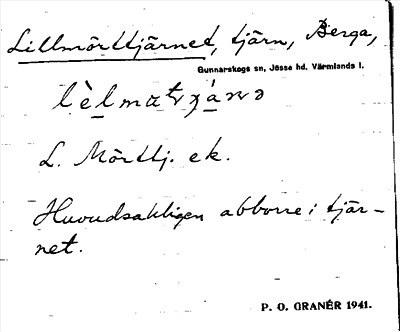 Lillmörttjärnet, tjärn, Berga,
Gunnarskogs sn, Jösse hd. Värmlands l.
L. Mörttj. ek.
Huvudsakligen abborre i tjär-
net.
P. O. GRANÉR 1941.